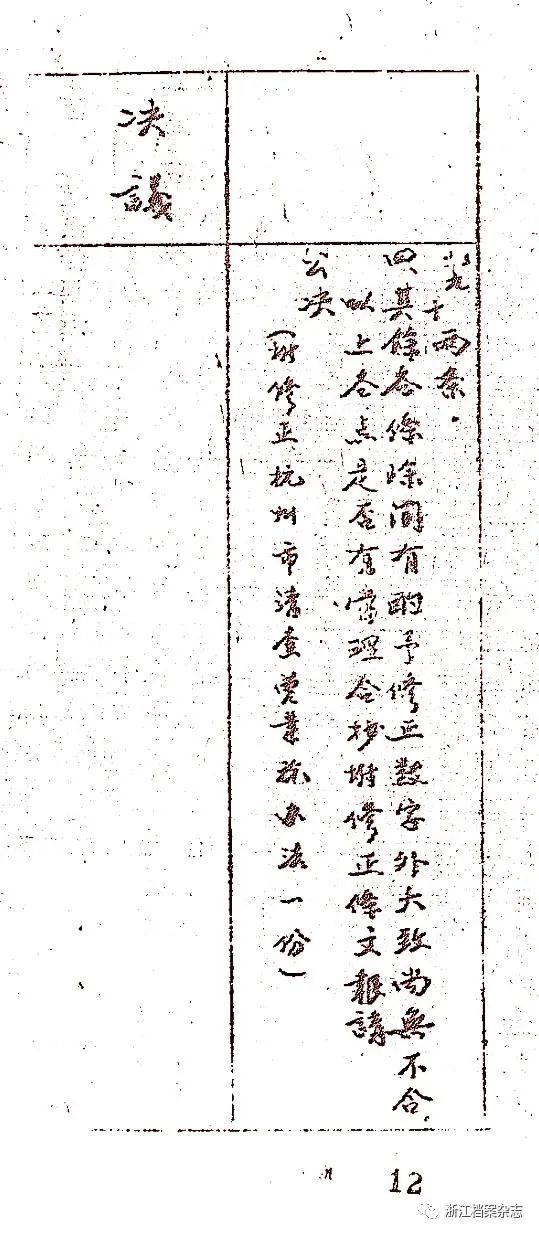 九十兩条。
四、其餘各條除間有酌予修正数字外大致尚無不合，
以上各点是否有當理合抄附修正條文報請
公决
（附修正杭州市清查営業稅办法一份）
决議
12
浙江档案杂志